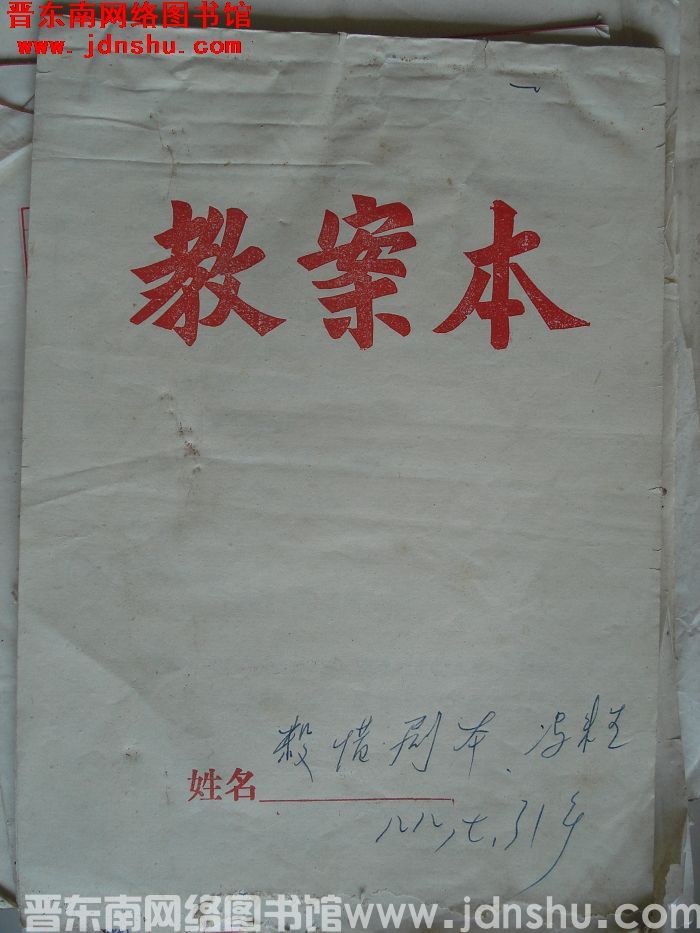 晋东南网络图书馆
www.jdnshu.com
教案本
杀惜剧本、
姓名
八八,七.31
晋东南网络图书馆www.jdnshu.com